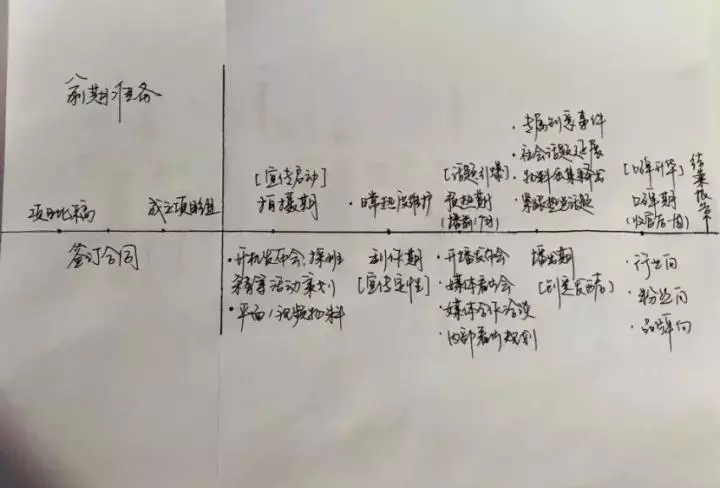 前期准备
项目比稿
成立项目组
签订合同
[宣传启动]
拍摄期
·开机发布会、探班
杀青等活动策划
·平面/视频物料
·日常热度维护
制作期
[宣传定性]
[话题引爆]
预热期
(播前1个月)
·开播发布会
·媒体看片会
·媒体合作洽谈
·内部看片规划
·专属创意事件
·社会话题延展
·物料密集释出
·紧跟热点话题
播出期
[口碑升华]
口碑期
(收官后一周)
·行业向
·粉丝向
·品牌向
结案报告